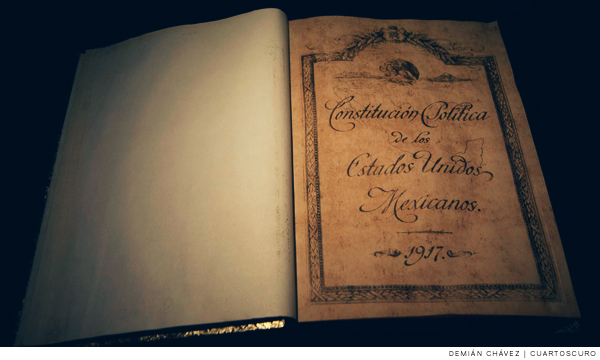 Constitución Politica
de los
Estados Unidos
Mexicanos.
1917.
DEMIÁN CHÁVEZ | CUARTOSCURO